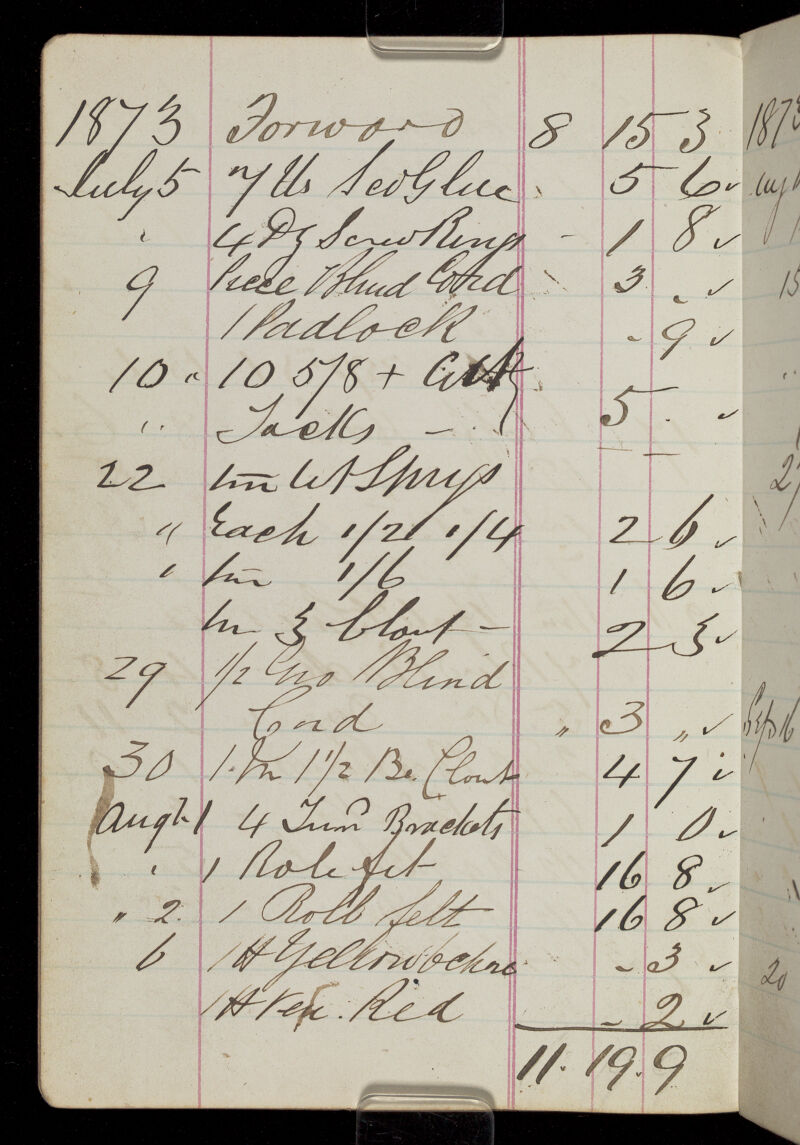 1873 Forward 8 15 3
July 5 7 lbs Glue 5 6
" 4 Dz Screw Rings - 1 8
9 Piece Blind Cord 3 "
1 Padlock - 9
10 " 10 5/8 + Cut
" Tacks - 5 .
22 1m Wt Sprigs
" Each 1/2 1/4 2 6
" 1m 1/6 1 6
1m 3 Clout - 2 3
29 1/2 Gro Blind
Cord " 3 "
30 1 m 1 1/2 Be. Clout 4 7
Augt 1 4 Turnd Brackets 1 0
" 1 Role felt 16 8
" 2. 1 Roll felt 16 8
6 1 lb Yellow Ochre - 3
1 lb Ven. Red - 2
11. 19. 9
1873
15
27
Sept 16
20